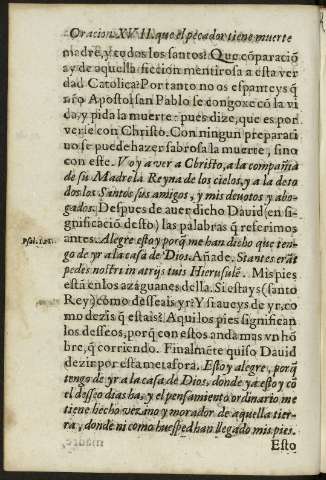 Oracion XVII. que el pecador tiene muerte
madre, y todos los santos? Que cõparaciõ
ay de aquella ficcion mentirosa a esta ver
dad Catolica? Por tanto no os espanteys q̃
nr̃o Apostol san Pablo se congoxe cõ la vi
da, y pida la muerte: pues dize, que es por
verse con Christo. Con ningun preparati
uo se puede hazer sabrosa la muerte, sino
con este. Voy a ver a Christo, a la compañia
de su Madre la Reyna de los cielos, y a la de to
dos los Santos sus amigos, y mis deuotos y abo-
gados. Despues de auer dicho Dauid (en si-
gnificaciõ desto) las palabras q̃ referimos
antes. Alegre estoy porq̃ me han dicho que ten-
go de yr a la casa de Dios. Añade. Stantes erãt
pedes nostri in atrijs tuis Hierusalẽ. Mis pies
estã en los azáguanes della. Si estays (santo
Rey) como desseais yr? Y si aueys de yr, co
mo dezis q̃ estais? Aqui los pies significan
los desseos, porq̃ con estos anda mas vn hõ
bre, q̃ corriendo. Finalmẽte quiso Dauid
dezir por esta metafora. Estoy alegre, porq̃
tengo de yr a la casa de Dios, donde ya estoy cõ
el desseo dias ha, y el pensamiento ordinario me
tiene hecho vezino y morador de aquella tier-
ra, donde ni como huesped han llegado mis pies.
Esto